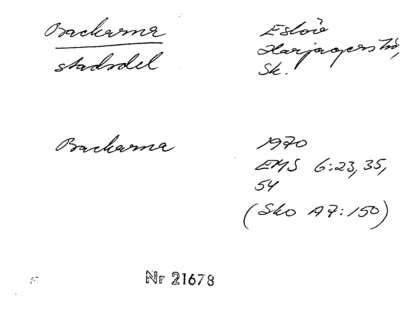 Backarna Eslöv
stadsdel Harjagers hd,
Sk.
Backarna 1970
EMS 6:23, 35,
54
(Sko A7:150)
Nr 21678